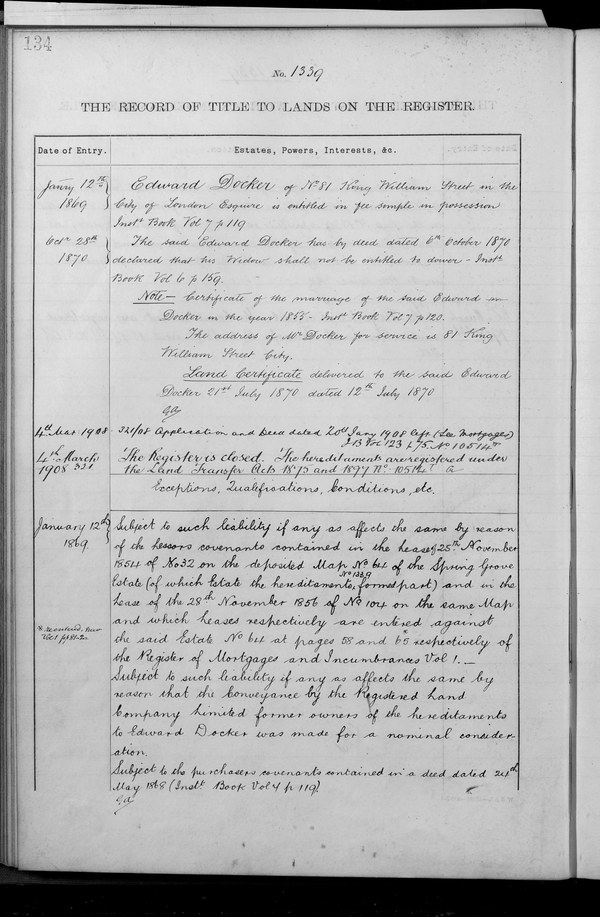 134
No. 1339
THE RECORD OF TITLE TO LANDS ON THE REGISTER.
Date of Entry. Estates, Powers, Interests, &c.
Janry 12th 1869 Edward Docker of No 81 King William Street in the
City of London Esquire is entitled in fee simple in possession
Inst Book Vol 7 p 119
Octr 28th 1870 The said Edward Docker has by deed dated 6th October 1870
declared that his Widow shall not be entitled to dower - Inst
Book Vol 6 p 159.
Note - Certificate of the marriage of the said Edward
Docker in the year 1855 - Inst Book Vol 7 p 120.
The address of Mr Docker for service is 81 King
William Street City.
Land Certificate delivered to the said Edward
Docker 21st July 1870 dated 12th July 1870
4th Mar 1908 - 321/08 Application and Deed dated 20th Jany 1908 left (See Mortgages)
I B Vol 123 p 75 No 10514
4th March 1908 321 The Register is closed. The hereditaments are registered under
the Land Transfer Acts 1875 and 1897 No 10514
Exceptions, Qualifications, Conditions, etc.
January 12th 1869. Subject to such liability if any as affects the same by reason
of the lessors covenants contained in the lease of 25th November
1854 of No 32 on the deposited Map No 64 of the Spring Grove
Estate (of which Estate the hereditaments No 1339 formed part) and in the
lease of the 28th November 1856 of No 104 on the same Map
and which leases respectively are entered against
the said Estate No 64 at pages 58 and 65* respectively of
the Register of Mortgages and Incumbrances Vol 1. —
* re entered. new
Vol 1
Subject to such liability if any as affects the same by
reason that the Conveyance by the Registered Land
Company Limited former owners of the hereditaments
to Edward Docker was made for a nominal consider-
ation.
Subject to the purchasers covenants contained in a deed dated 24th
May 1868 (Inst Book Vol 4 p 119)